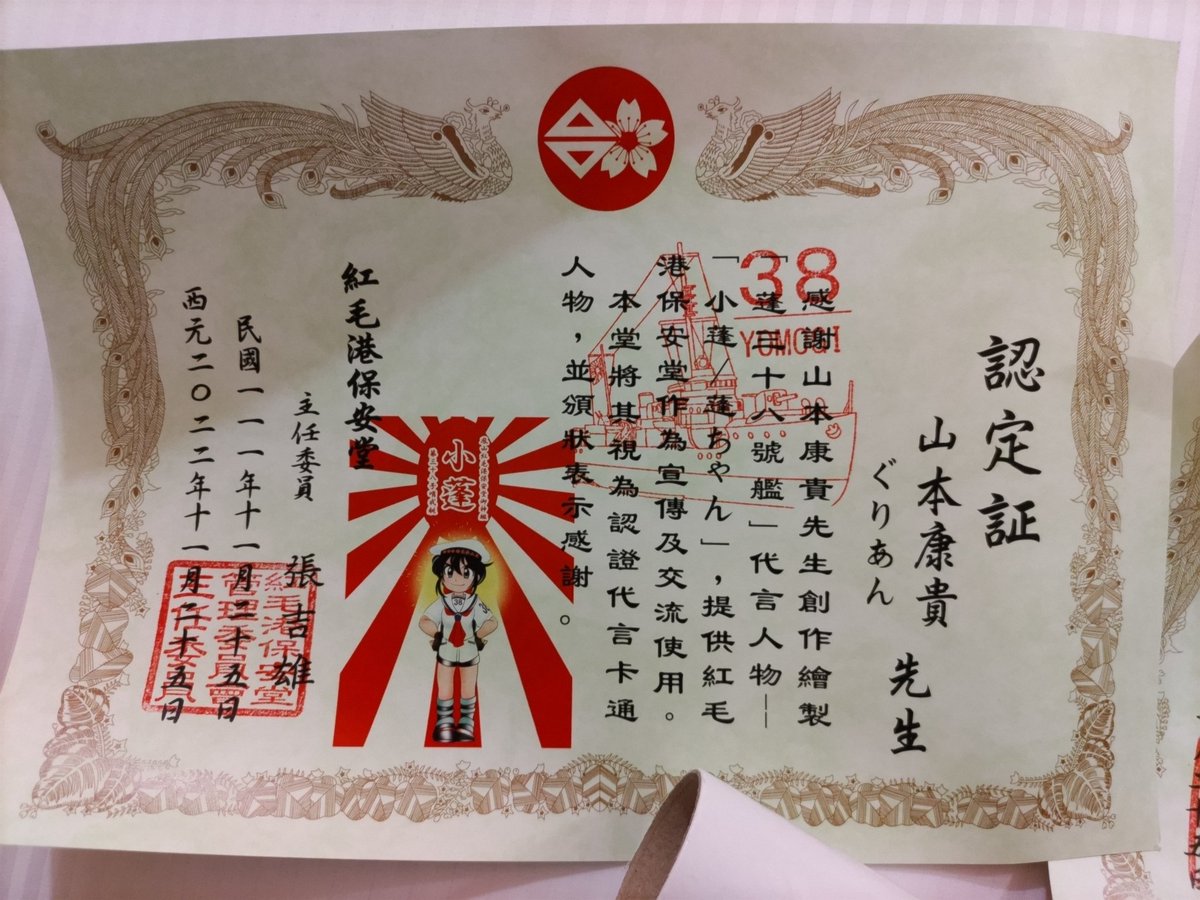 認定証
山本康貴 先生
ぐりあん
感謝山本康貴先生創作繪製
「蓬三十八號艦」代言人物—
「小蓬／蓬ちゃん」，提供紅毛
港保安堂作為宣傳及交流使用。
本堂將其視為認證代言卡通
人物，並頒狀表示感謝。
38
YOMOGI
小蓬
38
紅毛港保安堂
主任委員 張吉雄
紅毛港保安堂
管理委員會
主任委員
民國一一一年十一月二十五日
西元二〇二二年十一月二十五日